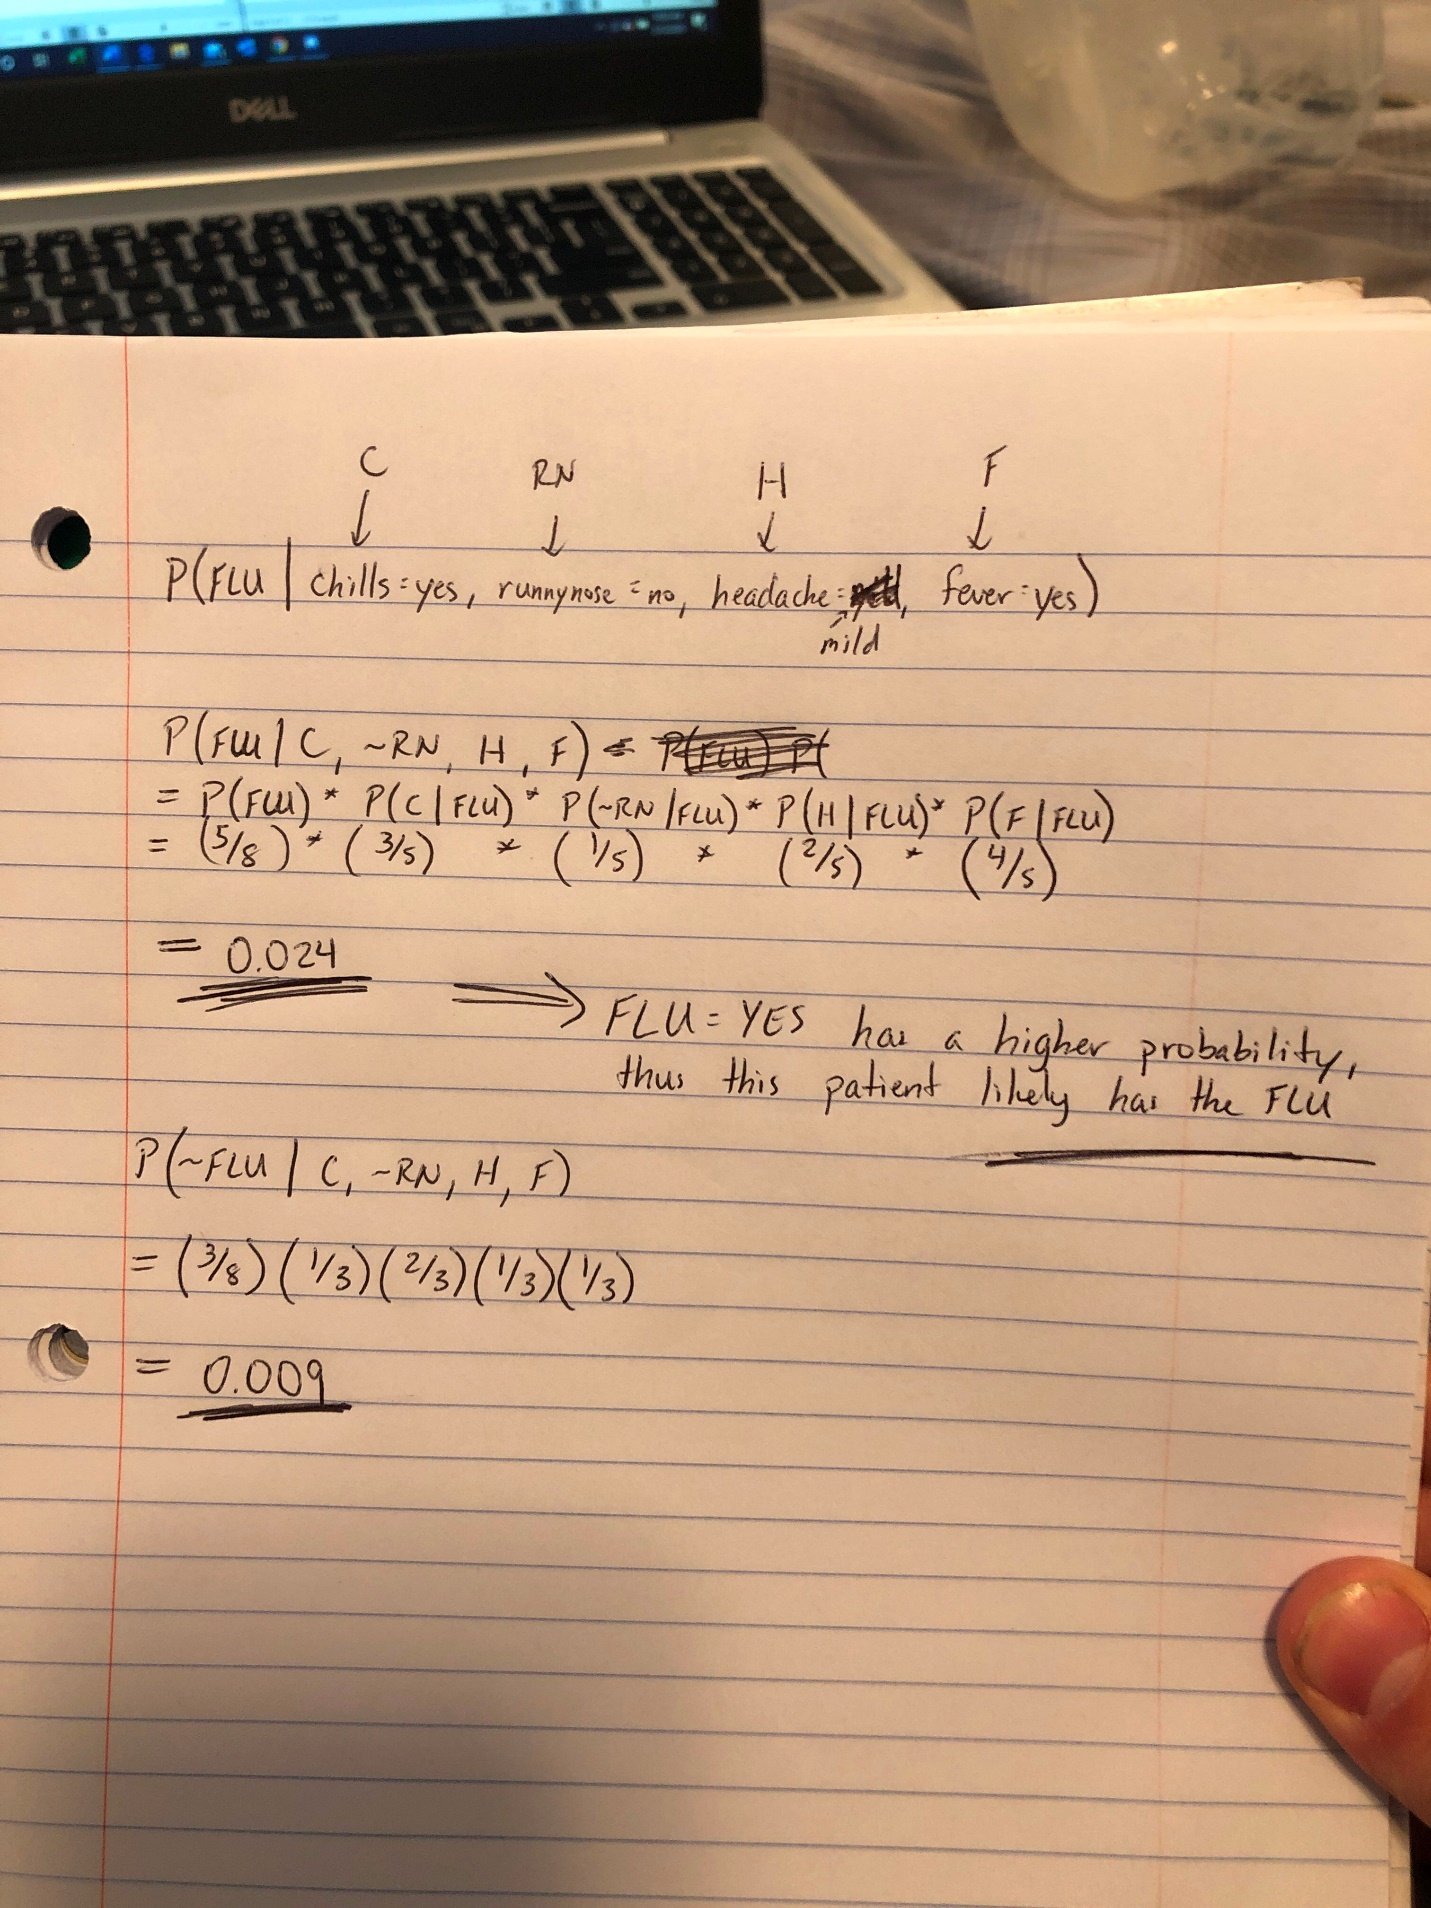 DELL
C RN H F
↓ ↓ ↓ ↓
P(FLU | chills=yes, runnynose=no, headache= , fever=yes)
mild
P(FLU | C, ~RN, H, F) = P(FLU) P(
= P(FLU) * P(C | FLU) * P(~RN | FLU) * P(H | FLU) * P(F | FLU)
= (5/8) * (3/5) * (1/5) * (2/5) * (4/5)
= 0.024
⟹ FLU = YES has a higher probability,
thus this patient likely has the FLU
P(~FLU | C, ~RN, H, F)
= (3/8)(1/3)(2/3)(1/3)(1/3)
= 0.009